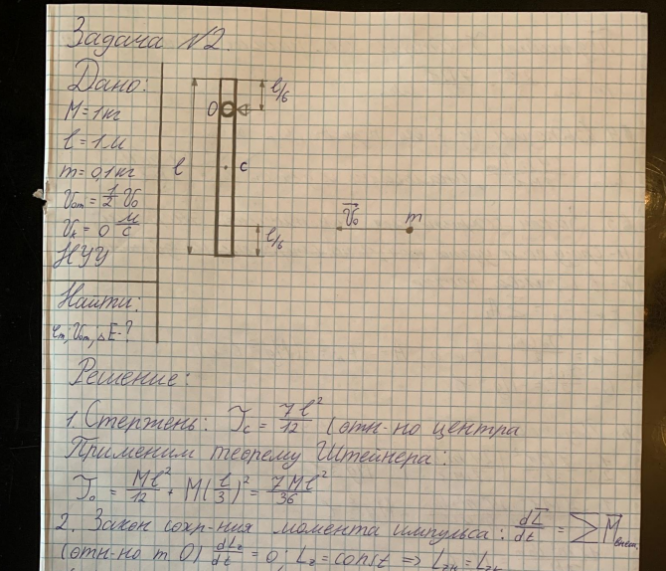 Задача №2.
Дано:
M=1кг
l=1м
m=0,1кг
V₀ₘ=1/2 V₀
Vₖ=0 м/с
НУУ
Найти:
ΔE-?
l
O
c
l/6
l/6
V₀
m
Решение:
1. Стержень: J_c = 7l²/12 (отн-но центра
Применим теорему Штейнера:
J₀ = Ml²/12 + M(l/3)² = 7Ml²/36
2. Закон сохр-ния момента импульса: dL/dt = ΣM внеш.
(отн-но т O) dL_z/dt = 0; L_z = const ⇒ L_zн = L_zк